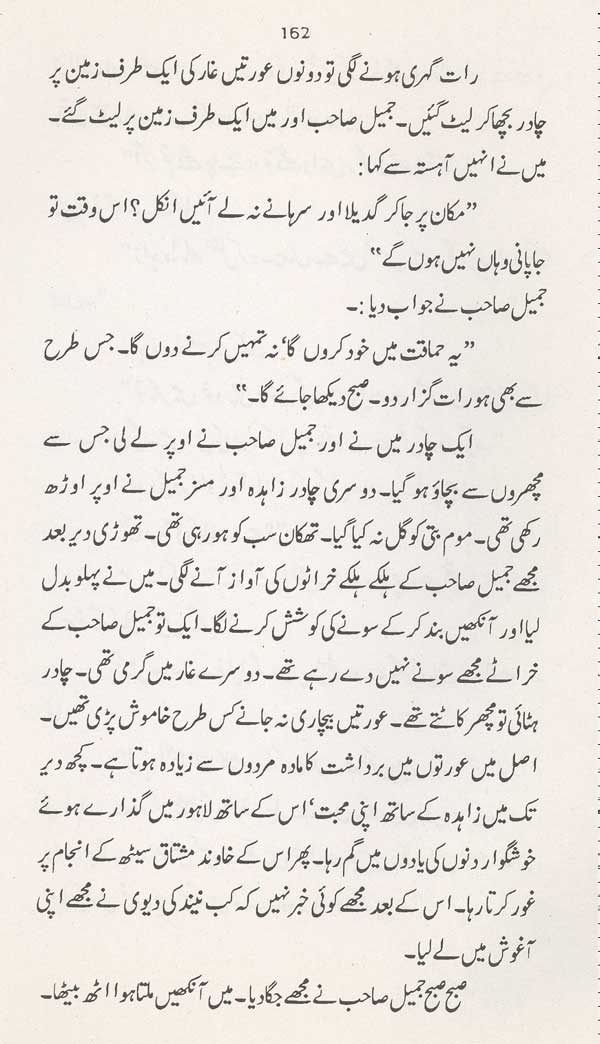 162
رات گہری ہونے لگی تو دونوں عورتیں غار کی ایک طرف زمین پر
چادر بچھا کر لیٹ گئیں۔ جمیل صاحب اور میں ایک طرف زمین پر لیٹ گئے۔
میں نے انہیں آہستہ سے کہا:
”مکان پر جا کر گدیلا اور سرہانے نہ لے آئیں انکل؟ اس وقت تو
جاپانی وہاں نہیں ہوں گے“
جمیل صاحب نے جواب دیا:۔
”یہ حماقت میں خود کروں گا‘ نہ تمہیں کرنے دوں گا۔ جس طرح
سے بھی ہو رات گزار دو۔ صبح دیکھا جائے گا۔“
ایک چادر میں نے اور جمیل صاحب نے اوپر لے لی جس سے
مچھروں سے بچاؤ ہو گیا۔ دوسری چادر زاہدہ اور مسز جمیل نے اوپر اوڑھ
رکھی تھی۔ موم بتی کو گل نہ کیا گیا۔ تھکان سب کو ہو رہی تھی۔ تھوڑی دیر بعد
مجھے جمیل صاحب کے ہلکے ہلکے خراٹوں کی آواز آنے لگی۔ میں نے پہلو بدل
لیا اور آنکھیں بند کر کے سونے کی کوشش کرنے لگا۔ ایک تو جمیل صاحب کے
خراٹے مجھے سونے نہیں دے رہے تھے۔ دوسرے غار میں گرمی تھی۔ چادر
ہٹائی تو مچھر کاٹتے تھے۔ عورتیں بیچاری نہ جانے کس طرح خاموش پڑی تھیں۔
اصل میں عورتوں میں برداشت کا مادہ مردوں سے زیادہ ہوتا ہے۔ کچھ دیر
تک میں زاہدہ کے ساتھ اپنی محبت‘ اس کے ساتھ لاہور میں گذارے ہوئے
خوشگوار دنوں کی یادوں میں گم رہا۔ پھر اس کے خاوند مشتاق سیٹھ کے انجام پر
غور کرتا رہا۔ اس کے بعد مجھے کوئی خبر نہیں کہ کب نیند کی دیوی نے مجھے اپنی
آغوش میں لے لیا۔
صبح صبح جمیل صاحب نے مجھے جگا دیا۔ میں آنکھیں ملتا ہوا اٹھ بیٹھا۔